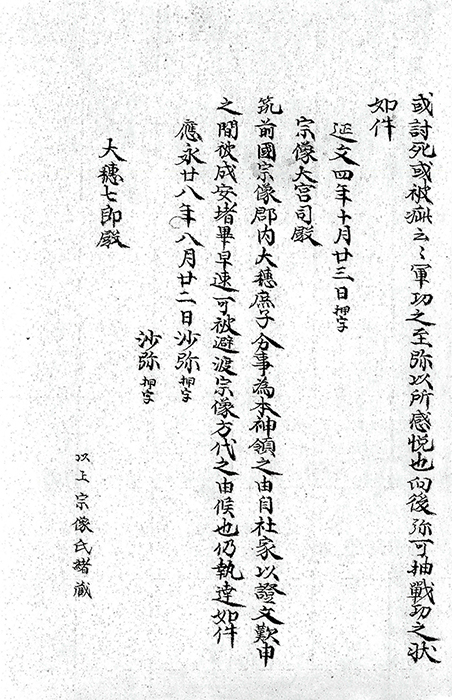 或討死或被疵云〻軍功之至弥以所感悦也向後弥可抽戦功之状
如件
延文四年十月廿三日押字
宗像大宮司殿
筑前國宗像郡内大穂庶子分事為本神領之由自社家以證文歎申
之間被成安堵畢早速可被避渡宗像方代之由候也仍執達如件
應永廿八年八月廿二日沙弥押字
沙弥押字
大穂七郎殿
以上宗像氏緒蔵